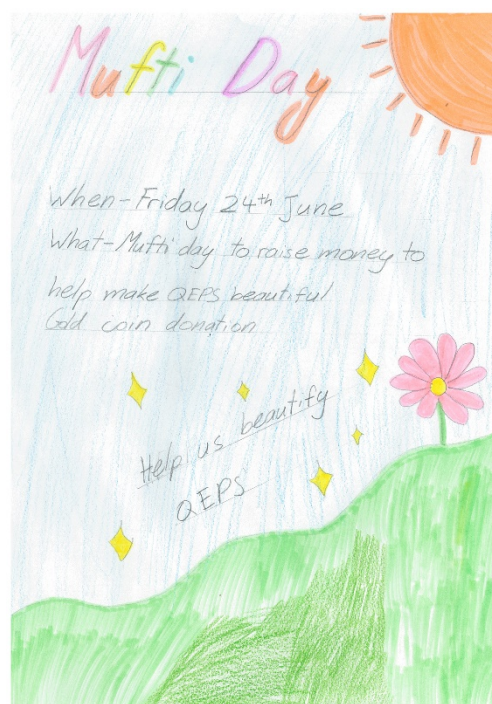 Mufti Day
When-Friday 24th June
What-Mufti day to raise money to
help make QEPS beautiful
Gold coin donation
Help us beautify
QEPS